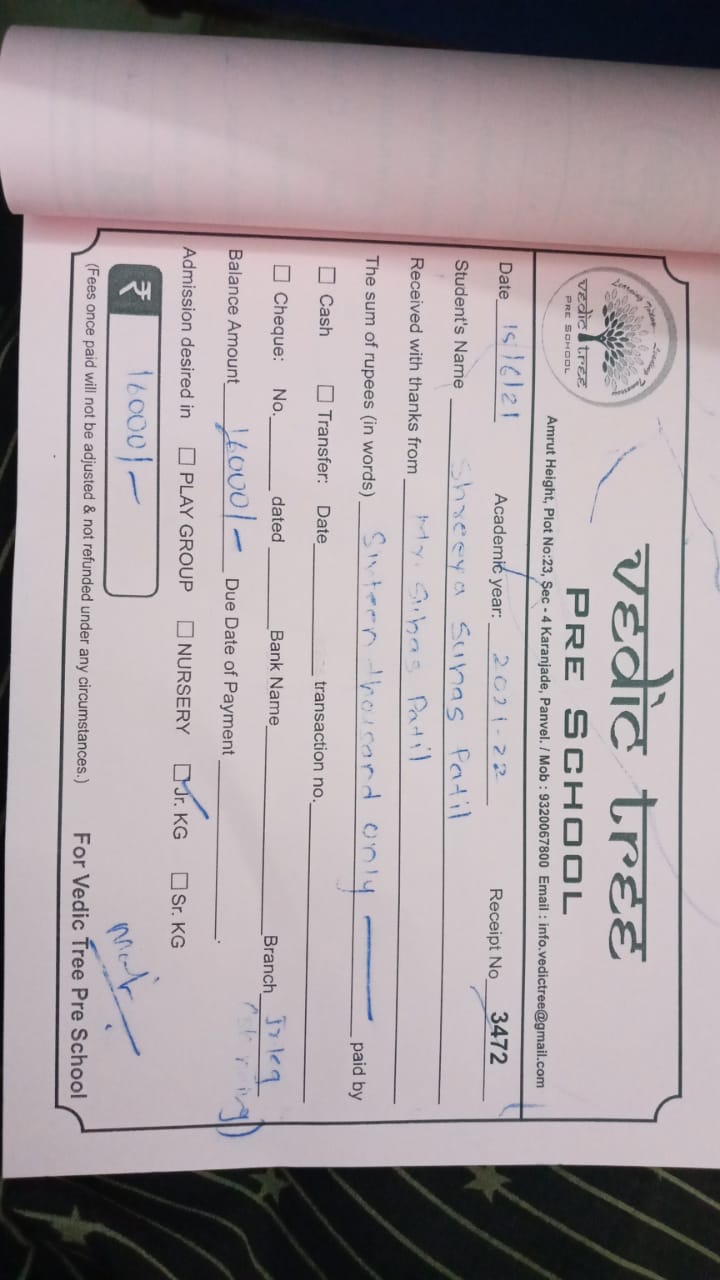 vedic tree
PRE SCHOOL
vedic tree
PRE SCHOOL
Amrut Height, Plot No:23, Sec - 4 Karanjade, Panvel. / Mob : 9320067800 Email : info.vedictree@gmail.com
Date 15/6/21 Academic year: 2021-22 Receipt No 3472
Student's Name Shreeya Suhas Patil
Received with thanks from Mr. Suhas Patil
The sum of rupees (in words) Sixteen thousand only paid by
Cash Transfer: Date transaction no.
Cheque: No. dated Bank Name Branch Jr kg
Balance Amount 16000/- Due Date of Payment .
Admission desired in PLAY GROUP NURSERY Jr. KG Sr. KG
₹ 16000/-
(Fees once paid will not be adjusted & not refunded under any circumstances.) For Vedic Tree Pre School